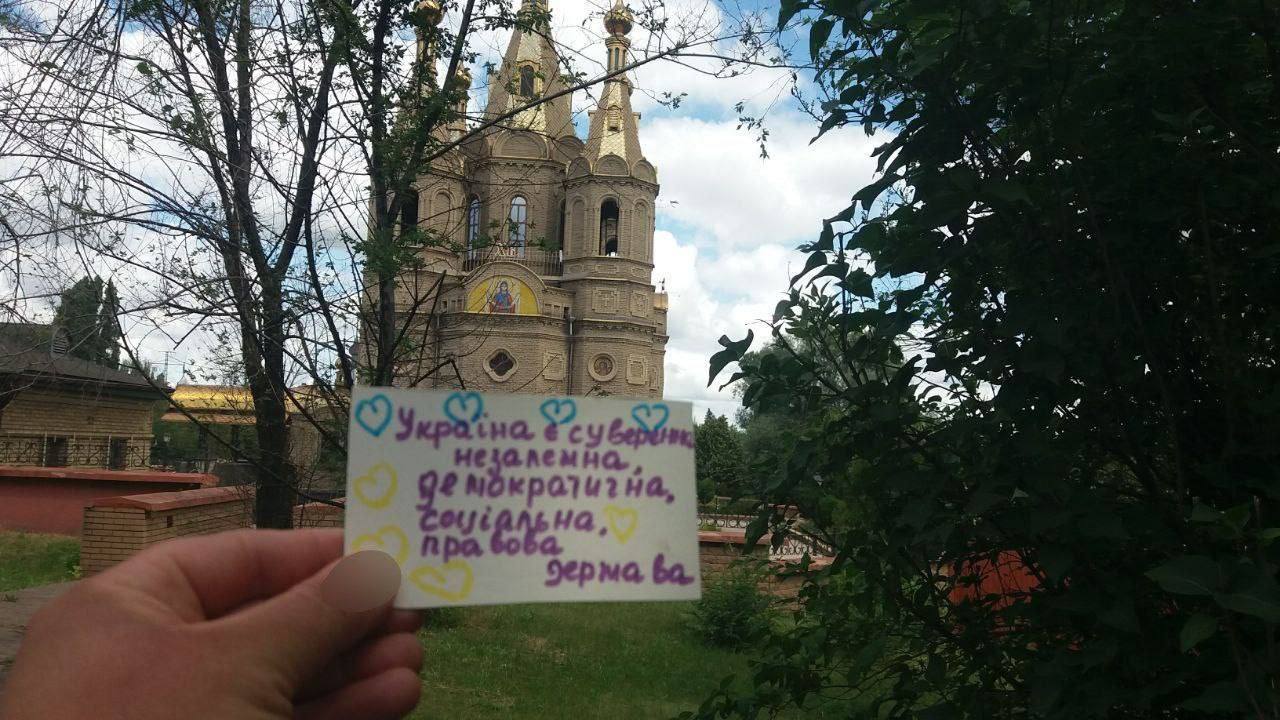 Україна є суверенна
незалемна,
демократична,
соціальна,
правова
держава